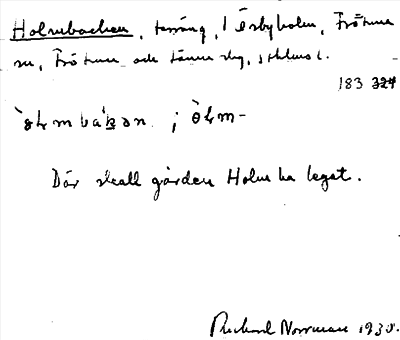 Holmbacken, terräng, i Örbyholm, Frötuna
sn, Frötuna och Länna skg, Sthlms l.
183 324
Där skall gården Holm ha legat.
Richard Norrman 1938.